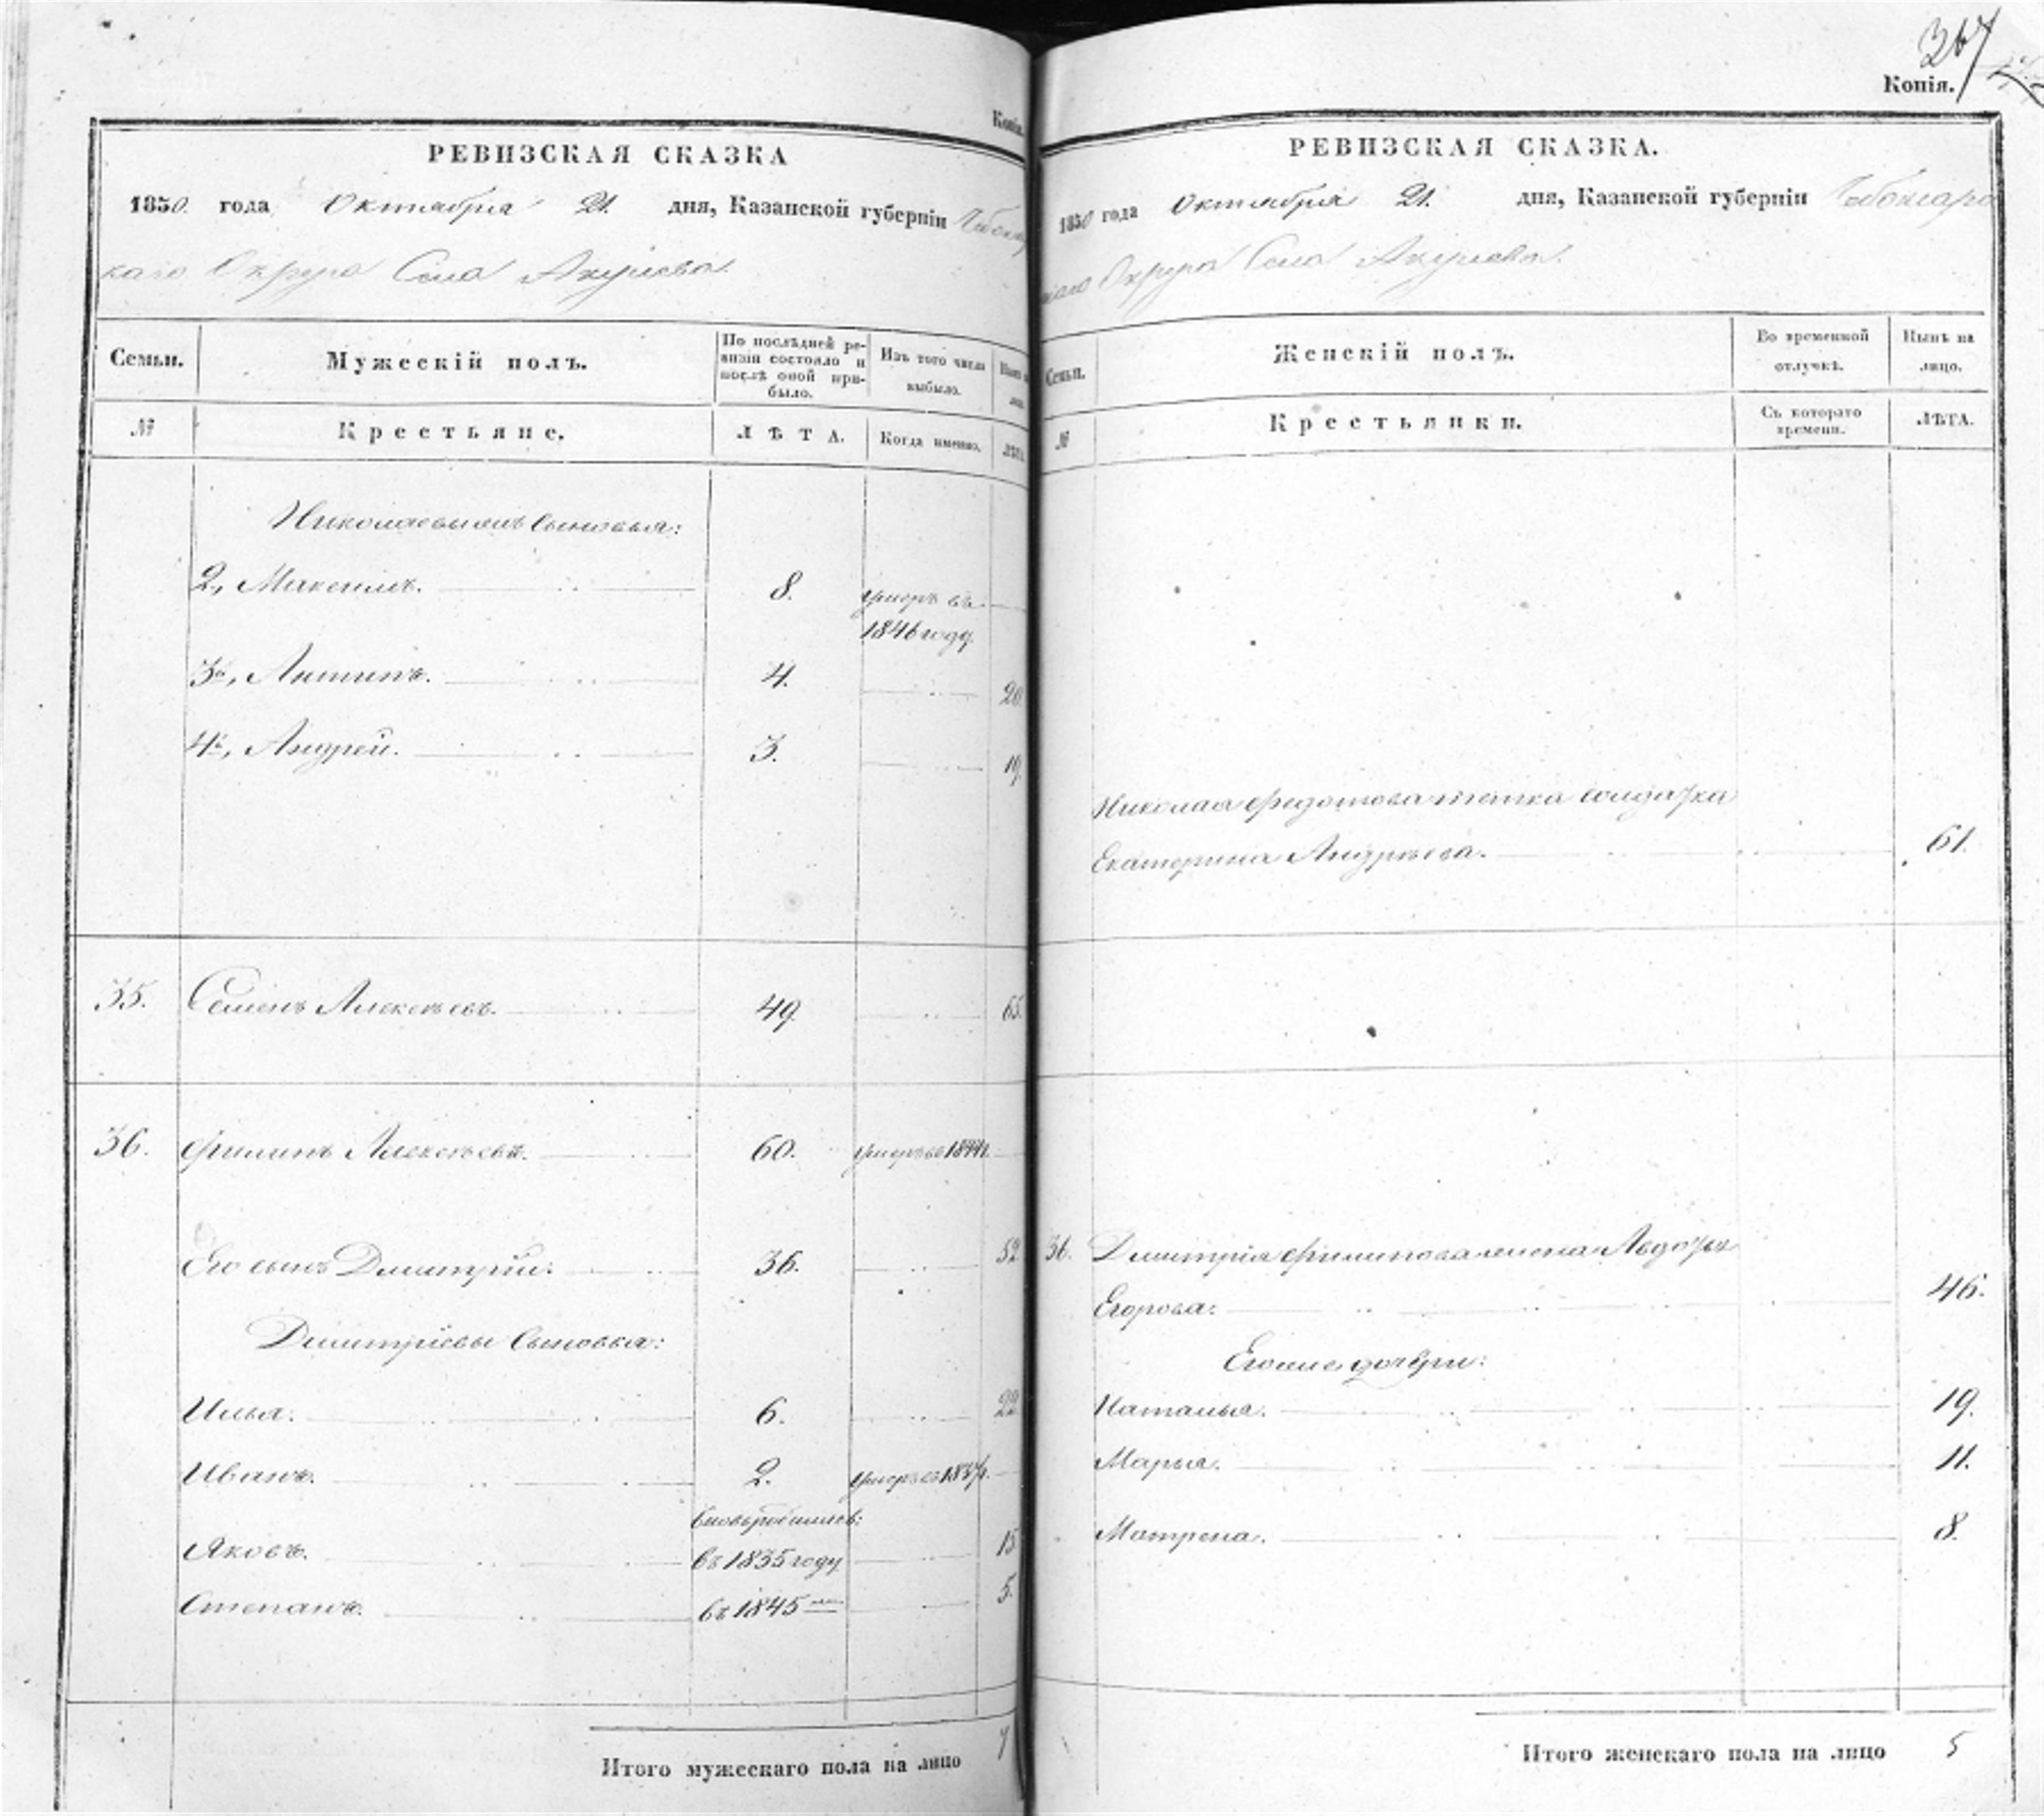 Копія.
РЕВИЗСКАЯ СКАЗКА
1850 года Октября 21. дня, Казанской губерніи Чебокса
каго Округа Села Акулева.
Семьи. Мужескій полъ. По послѣдней ре-
визіи состояло и
послѣ оной при-
было. Изъ того числа
выбыло.
№ Крестьяне. ЛѢТА. Когда именно. ЛѢТА.
Николаевы сыновья:
2, Максимъ. 8. умеръ въ
1846 году.
3й, Антипъ. 4. 20.
4й, Андрей. 3. 19.
35. Семенъ Алексѣевъ. 49. 65.
36. Филипъ Алексѣевъ. 60. умеръ въ 1844 г.
Его сынъ Дмитрій. 36. 52.
Дмитріевы сыновья:
Илья. 6. 22.
Иванъ. 2. умеръ въ 1837 г.
вновь рожденъ:
Яковъ. въ 1835 году 15.
Степанъ. въ 1845 5.
Итого мужескаго пола на лицо 7
367
Копія.
РЕВИЗСКАЯ СКАЗКА.
1850 года Октября 21. дня, Казанской губерніи Чебоксарс
каго Округа Села Акулева.
Семьи. Женскій полъ. Во временной
отлучкѣ. Нынѣ на
лицо.
№ Крестьянки. Съ котораго
времени. ЛѢТА.
Николая Федотова тетка солдатка
Екатерина Андрѣева. 61.
36. Дмитрія Филипова жена Авдотья
Егорова. 46.
Его же дочери:
Наталья. 19.
Марья. 11.
Матрена. 8.
Итого женскаго пола на лицо 5